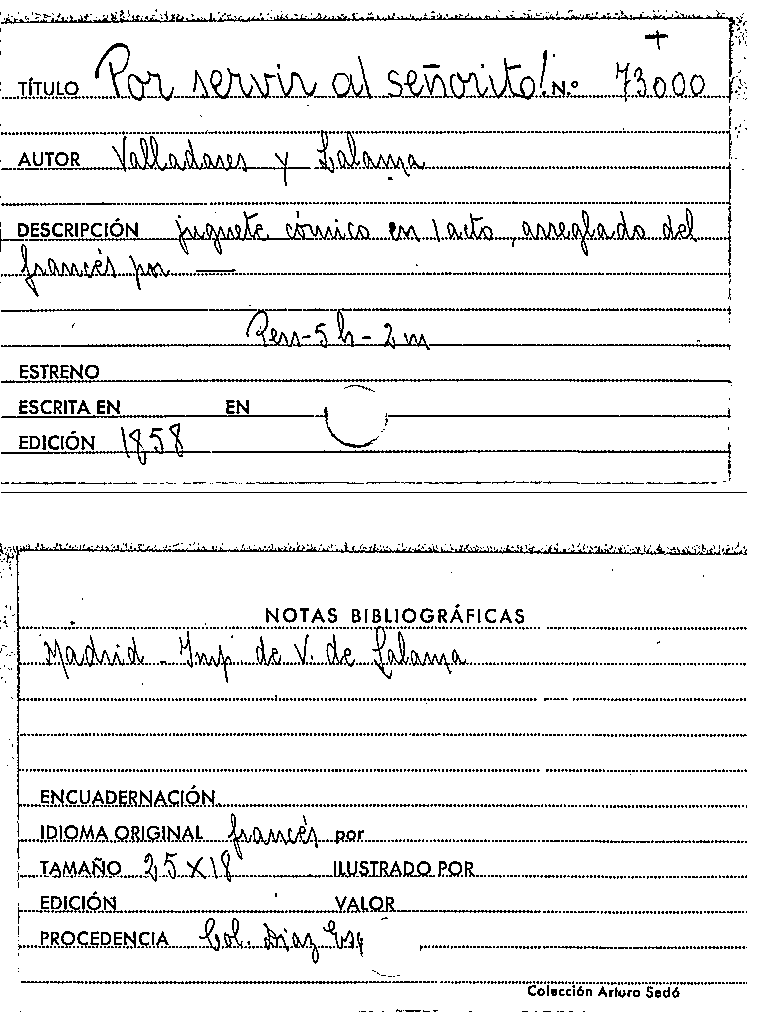 +
TÍTULO Por servir al señorito! N.o 73000
AUTOR Valladares y Lalama
DESCRIPCIÓN juguete cómico en 1 acto, arreglado del
francés por —
Pers-5 h-2 m
ESTRENO
ESCRITA EN EN
EDICIÓN 1858
NOTAS BIBLIOGRÁFICAS
Madrid - Imp. de V. de Lalama
ENCUADERNACIÓN
IDIOMA ORIGINAL francés por
TAMAÑO 25 X 18 ILUSTRADO POR
EDICIÓN VALOR
PROCEDENCIA Col. Díaz Esq
Colección Arturo Sedó